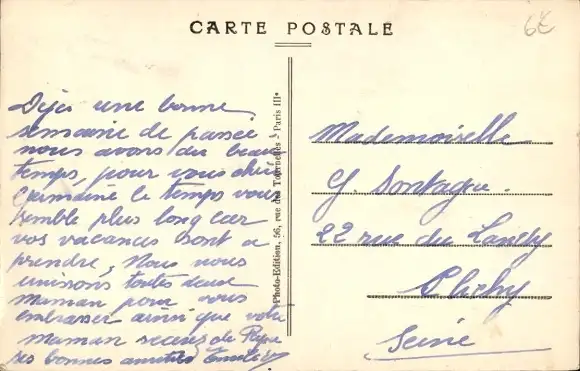 CARTE POSTALE
6€
Déjà une bonne
semaine de passée
nous avons du beau
temps, pour vous chère
Germaine le temps vous
semble plus long car
vos vacances sont a
prendre, Nous nous
unissons toutes deux
maman pour vous
embrasser ainsi que votre
maman
ses bonnes amitiés
Photo-Edition, 56, rue des Tournelles - Paris III•
Mademoiselle
G.
22 rue du Landy
Clichy
Seine